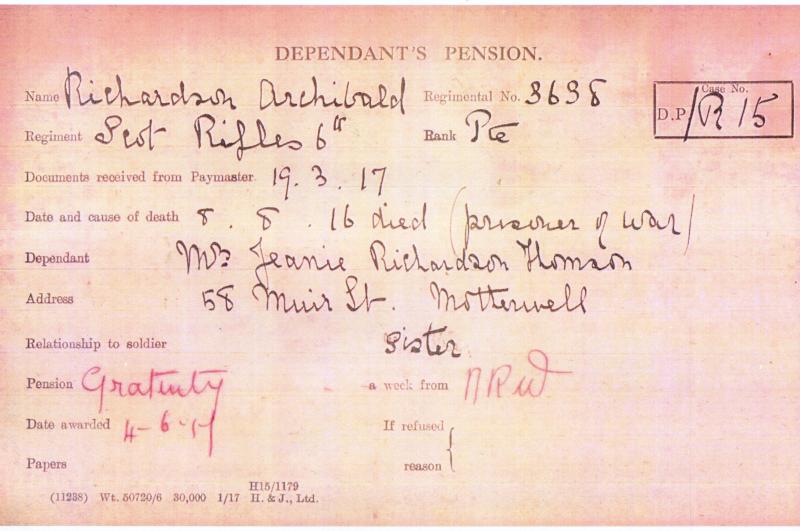 DEPENDANT'S PENSION.
Name Richardson Archibald Regimental No. 3638
Case No.
D.P/R 15
Regiment Scot Rifles 6th Rank Pte
Documents received from Paymaster 19.3.17
Date and cause of death 8.8.16 died (prisoner of war)
Dependant Mrs Jeanie Richardson Thomson
Address 58 Muir St. Motherwell
Relationship to soldier Sister
Pension Gratuity - a week from
Date awarded 4-6-17 If refused
reason {
Papers
H15/1179
(11238) Wt. 50720/6 30,000 1/17 H. & J., Ltd.